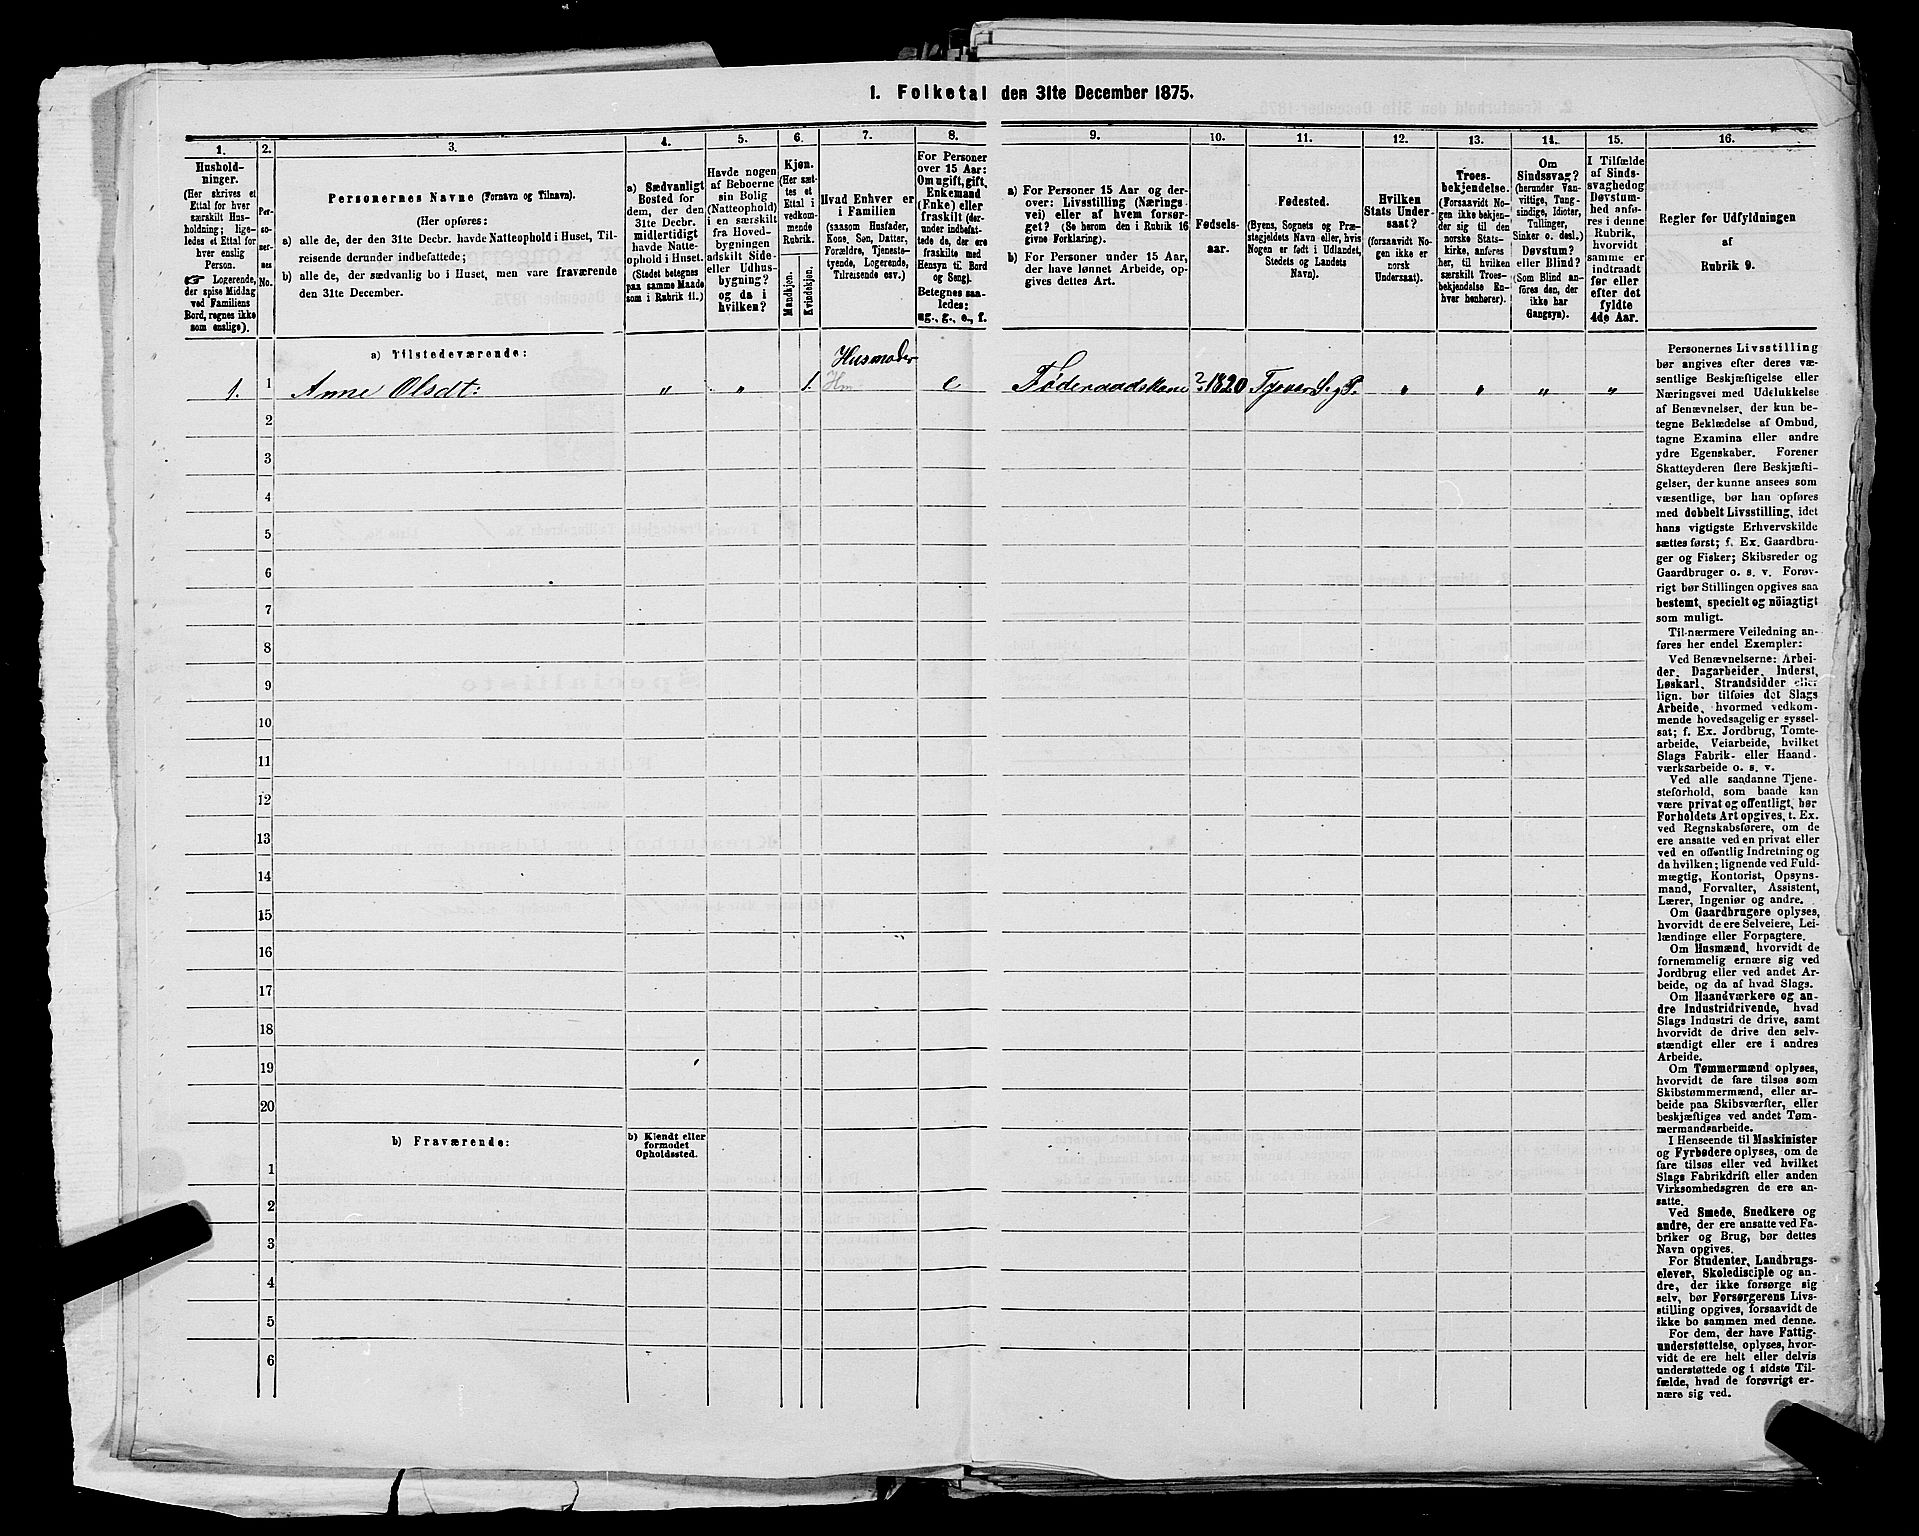 1. Folketal den 31te December 1875.
1.
Hushold-
ninger.
(Her skrives et
Ettal for hver
særskilt Hus-
holdning; lige-
ledes et Ettal for
hver enslig
Person.
☞ Logerende,
der spise Middag
ved Familiens
Bord, regnes ikke
som enslige).
2.
Per-
so-
ner-
nes
No.
3.
Personernes Navne (Fornavn og Tilnavn).
(Her opføres:
a) alle de, der den 31te Decbr. havde Natteophold i Huset, Til-
reisende derunder indbefattede;
b) alle de, der sædvanlig bo i Huset, men vare fraværende
den 31te December.
4.
a) Sædvanligt
Bosted for
dem, der den
31te Decbr.
midlertidigt
havde Natte-
ophold i Huset.
(Stedet betegnes
paa samme Maade
som i Rubrik 11.)
5.
Havde nogen
af Beboerne
sin Bolig
(Natteophold)
i en særskilt
fra Hoved-
bygningen
adskilt Side-
eller Udhus-
bygning?
og da i
hvilken?
6.
Kjøn.
(Her sæt-
tes et
Ettal i
vedkom-
mende
Rubrik.
Mandkjøn.
Kvindekjøn.
7.
Hvad Enhver er
i Familien
(saasom Husfader,
Kone, Søn, Datter,
Forældre, Tjeneste-
tyende, Logerende,
Tilreisende osv.)
8.
For Personer
over 15 Aar:
Om ugift, gift,
Enkemand
(Enke) eller
fraskilt (der-
under indbefat-
tede de, der ere
fraskilte med
Hensyn til Bord
og Seng).
Betegnes saa-
ledes:
ug., g., e., f.
9.
a) For Personer 15 Aar og der-
over: Livsstilling (Nærings-
vei) eller af hvem forsør-
get? (Se herom den i Rubrik 16
givne Forklaring).
b) For Personer under 15 Aar,
der have lønnet Arbeide, op-
gives dettes Art.
10.
Fødsels-
aar.
11.
Fødested.
(Byens, Sognets og Præ-
stegjeldets Navn eller, hvis
Nogen er født i Udlandet,
Stedets og Landets
Navn).
12.
Hvilken
Stats Under-
saat?
(forsaavidt No-
gen ikke er
norsk
Undersaat).
13.
Troes-
bekjendelse.
(Forsaavidt No-
gen ikke bekjen-
der sig til den
norske Stats-
kirke, anføres
her, til hvilken
særskilt Troes-
bekjendelse En-
hver henhører).
14.
Om
Sindssvag?
(herunder Van-
vittige, Tung-
sindige, Idioter,
Tullinger,
Sinker o. desl.)
Døvstum?
eller Blind?
(Som Blind an-
føres den, der
ikke har
Gangsyn).
15.
I Tilfælde
af Sinds-
svaghed og
Døvstum-
hed anfø-
res i denne
Rubrik,
hvorvidt
samme er
indtraadt
før eller
efter det
fyldte
4de Aar.
16.
Regler for Udfyldningen
af
Rubrik 9.
a) Tilstedeværende:
Husmoder
1. 1 Anne Olsdt: " " 1. Hm e Føderaadskone 1820 Tysvær S. g P. " " " "
2
3
4
5
6
7
8
9
10
11
12
13
14
15
16
17
18
19
20
b) Fraværende:
b) Kjendt eller
formodet
Opholdssted.
1
2
3
4
5
6
Personernes Livsstilling
bør angives efter deres væ-
sentlige Beskjæftigelse eller
Næringsvei med Udelukkelse
af Benævnelser, der kun be-
tegne Beklædelse af Ombud,
tagne Examina eller andre
ydre Egenskaber. Forener
Skatteyderen flere Beskjæfti-
gelser, der kunne ansees som
væsentlige, bør han opføres
med dobbelt Livsstilling, idet
hans vigtigste Erhvervskilde
sættes først; f. Ex. Gaardbru-
ger og Fisker; Skibsreder og
Gaardbruger o. s. v. Forøv-
rigt bør Stillingen opgives saa
bestemt, specielt og nöiagtigt
som muligt.
Til nærmere Veiledning an-
føres her endel Exempler:
Ved Benævnelserne: Arbei-
der, Dagarbeider, Inderst,
Løskarl, Strandsidder eller
lign. bør tilføies det Slags
Arbeide, hvormed vedkom-
mende hovedsagelig er syssel-
sat; f. Ex. Jordbrug, Tomte-
arbeide, Veiarbeide, hvilket
Slags Fabrik- eller Haand-
værksarbeide o. s. v.
Ved alle saadanne Tjene-
steforhold, som baade kan
være privat og offentligt, bør
Forholdets Art opgives, t. Ex.
ved Regnskabsførere, om de
ere ansatte ved en privat eller
ved en offentlig Indretning og
da hvilken; lignende ved Fuld-
mægtig, Kontorist, Opsyns-
mand, Forvalter, Assistent,
Lærer, Ingeniør og andre.
Om Gaardbrugere oplyses,
hvorvidt de ere Selveiere, Lei-
lændinge eller Forpagtere.
Om Husmænd, hvorvidt de
fornemmelig ernære sig ved
Jordbrug eller ved andet Ar-
beide, og da af hvad Slags.
Om Haandværkere og an-
dre Industridrivende, hvad
Slags Industri de drive, samt
hvorvidt de drive den selv-
stændigt eller ere i andres
Arbeide.
Om Tømmermænd oplyses,
hvorvidt de fare tilsøs som
Skibstømmermænd, eller ar-
beide paa Skibsværfter, eller
beskjæftiges ved andet Tøm-
mermandsarbeide.
I Henseende til Maskinister
og Fyrbødere oplyses, om de
fare tilsøs eller ved hvilket
Slags Fabrikdrift eller anden
Virksomhedsgren de ere an-
satte.
Ved Smede, Snedkere og
andre, der ere ansatte ved Fa-
briker og Brug, bør dettes
Navn opgives.
For Studenter, Landbrugs-
elever, Skoledisciple og an-
dre, der ikke forsørge sig
selv, bør Forsørgerens Livs-
stilling opgives, forsaavidt de
ikke bo sammen med denne.
For dem, der have Fattig-
understøttelse, oplyses, hvor-
vidt de ere helt eller delvis
understøttede og i sidste Til-
fælde, hvad de forøvrigt er-
nære sig ved.